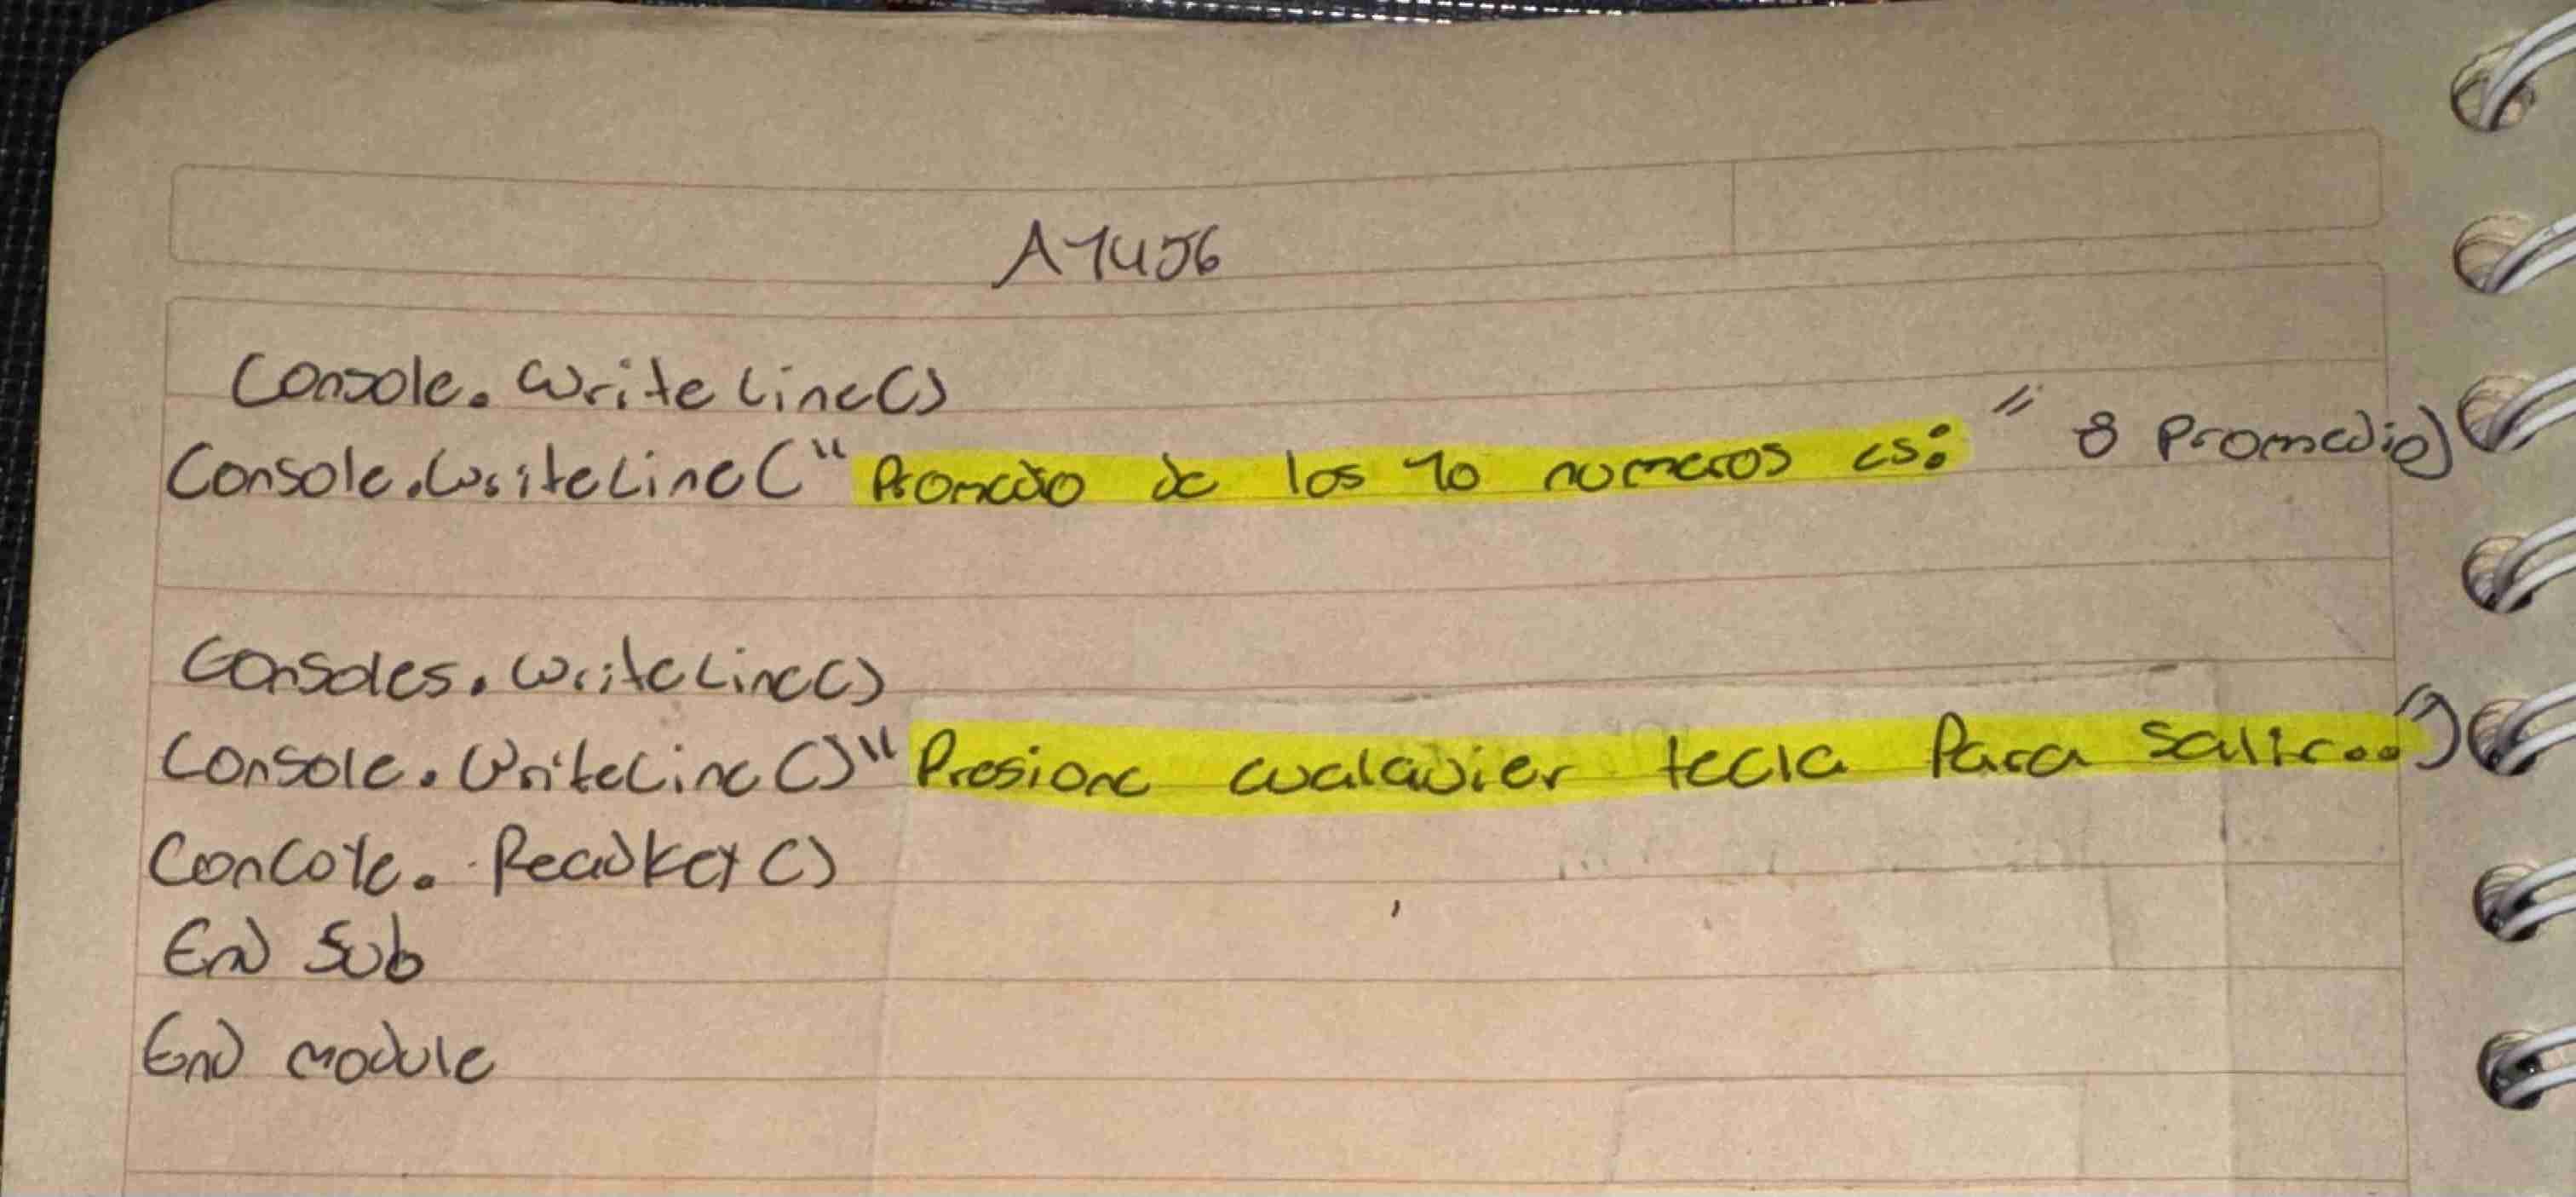 A1456
Console.WriteLine()
Console.WriteLine("Promedio de los 10 numeros es: " & Promedio)
Consoles.WriteLine()
Console.WriteLine()"Presione cualquier tecla Para salir...")
Concole.ReadKey()
End Sub
End module